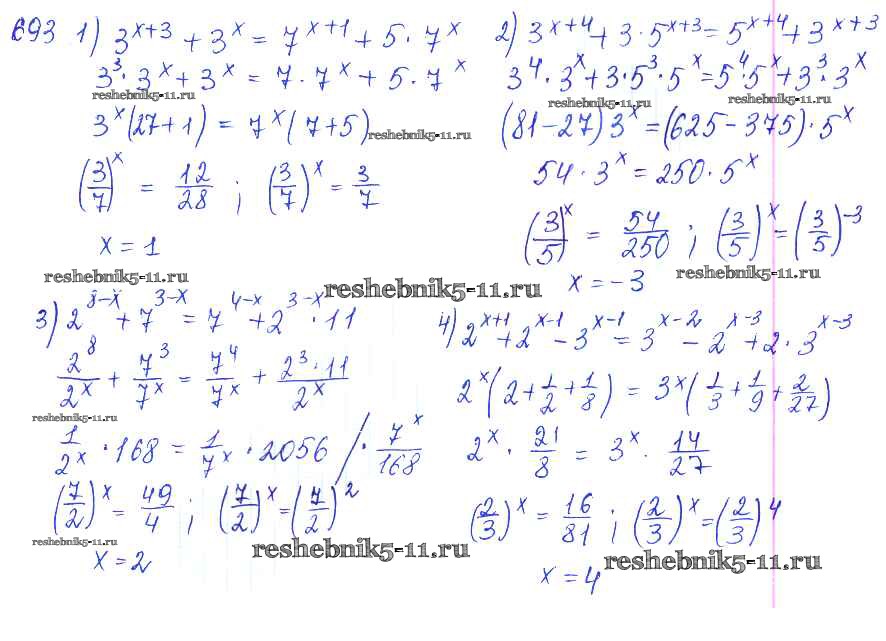 693 1) 3^(x+3) + 3^x = 7^(x+1) + 5·7^x
3^3·3^x + 3^x = 7·7^x + 5·7^x
reshebnik5-11.ru
3^x(27+1) = 7^x(7+5) reshebnik5-11.ru
(3/7)^x = 12/28 ; (3/7)^x = 3/7
x = 1
reshebnik5-11.ru
2) 3^(x+4) + 3·5^(x+3) = 5^(x+4) + 3^(x+3)
3^4·3^x + 3·5^3·5^x = 5^4·5^x + 3^3·3^x
reshebnik5-11.ru reshebnik5-11.ru
(81-27)3^x = (625-375)·5^x
54·3^x = 250·5^x
(3/5)^x = 54/250 ; (3/5)^x = (3/5)^-3
x = -3 reshebnik5-11.ru
reshebnik5-11.ru
3) 2^(8-x) + 7^(3-x) = 7^(4-x) + 2^(3-x)·11
2^8/2^x + 7^3/7^x = 7^4/7^x + 2^3·11/2^x
reshebnik5-11.ru
1/2^x · 168 = 1/7^x · 2056 / · 7^x/168
(7/2)^x = 49/4 ; (7/2)^x = (7/2)^2
reshebnik5-11.ru
x = 2 reshebnik5-11.ru
4) 2^(x+1) + 2^(x-1) - 3^(x-1) = 3^(x-2) - 2^(x-3) + 2·3^(x-3)
2^x(2 + 1/2 + 1/8) = 3^x(1/3 + 1/9 + 2/27)
2^x · 21/8 = 3^x · 14/27
(2/3)^x = 16/81 ; (2/3)^x = (2/3)^4
reshebnik5-11.ru
x = 4